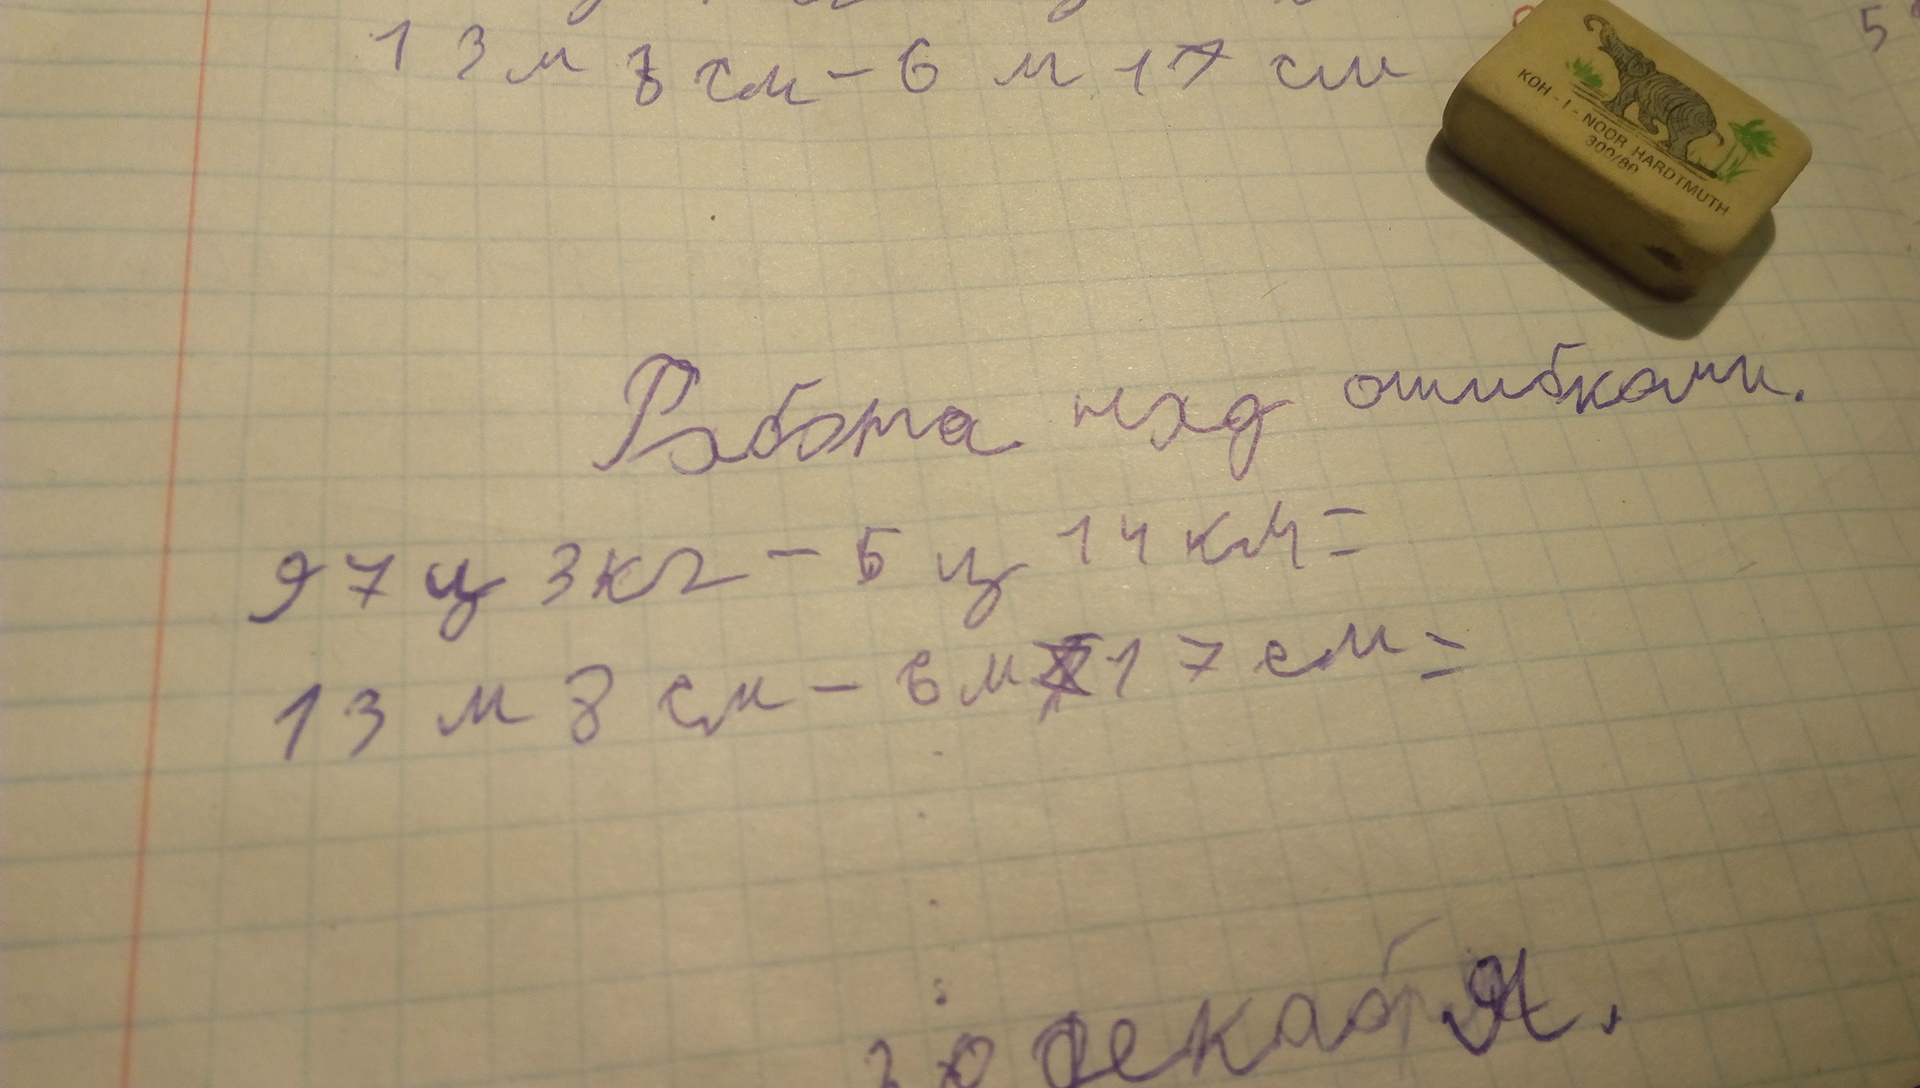 13м 8 см – 6 м 17 см
5
KOH-I-NOOR HARDTMUTH
300/80
Работа над ошибками.
97 ц 3 кг – 5 ц 14 км =
13 м 8 см – 6 м 17 см =
20 декабря.